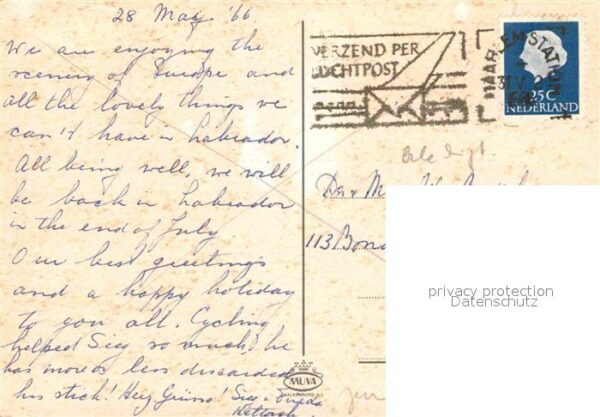 28 May '66
We are enjoying the
scenery of Europe and
all the lovely things we
can't have in Labrador.
All being well, we will
be back in Labrador
in the end of July.
Our best greetings
and a happy holiday
to you all. Cycling
helped Sieg so much! he
has more or less discarded
his stick!
VERZEND PER
LUCHTPOST
HAARLEM STATION
31 V
25 C
NEDERLAND
113
MUVA
VALKENBURG
privacy protection
Datenschutz